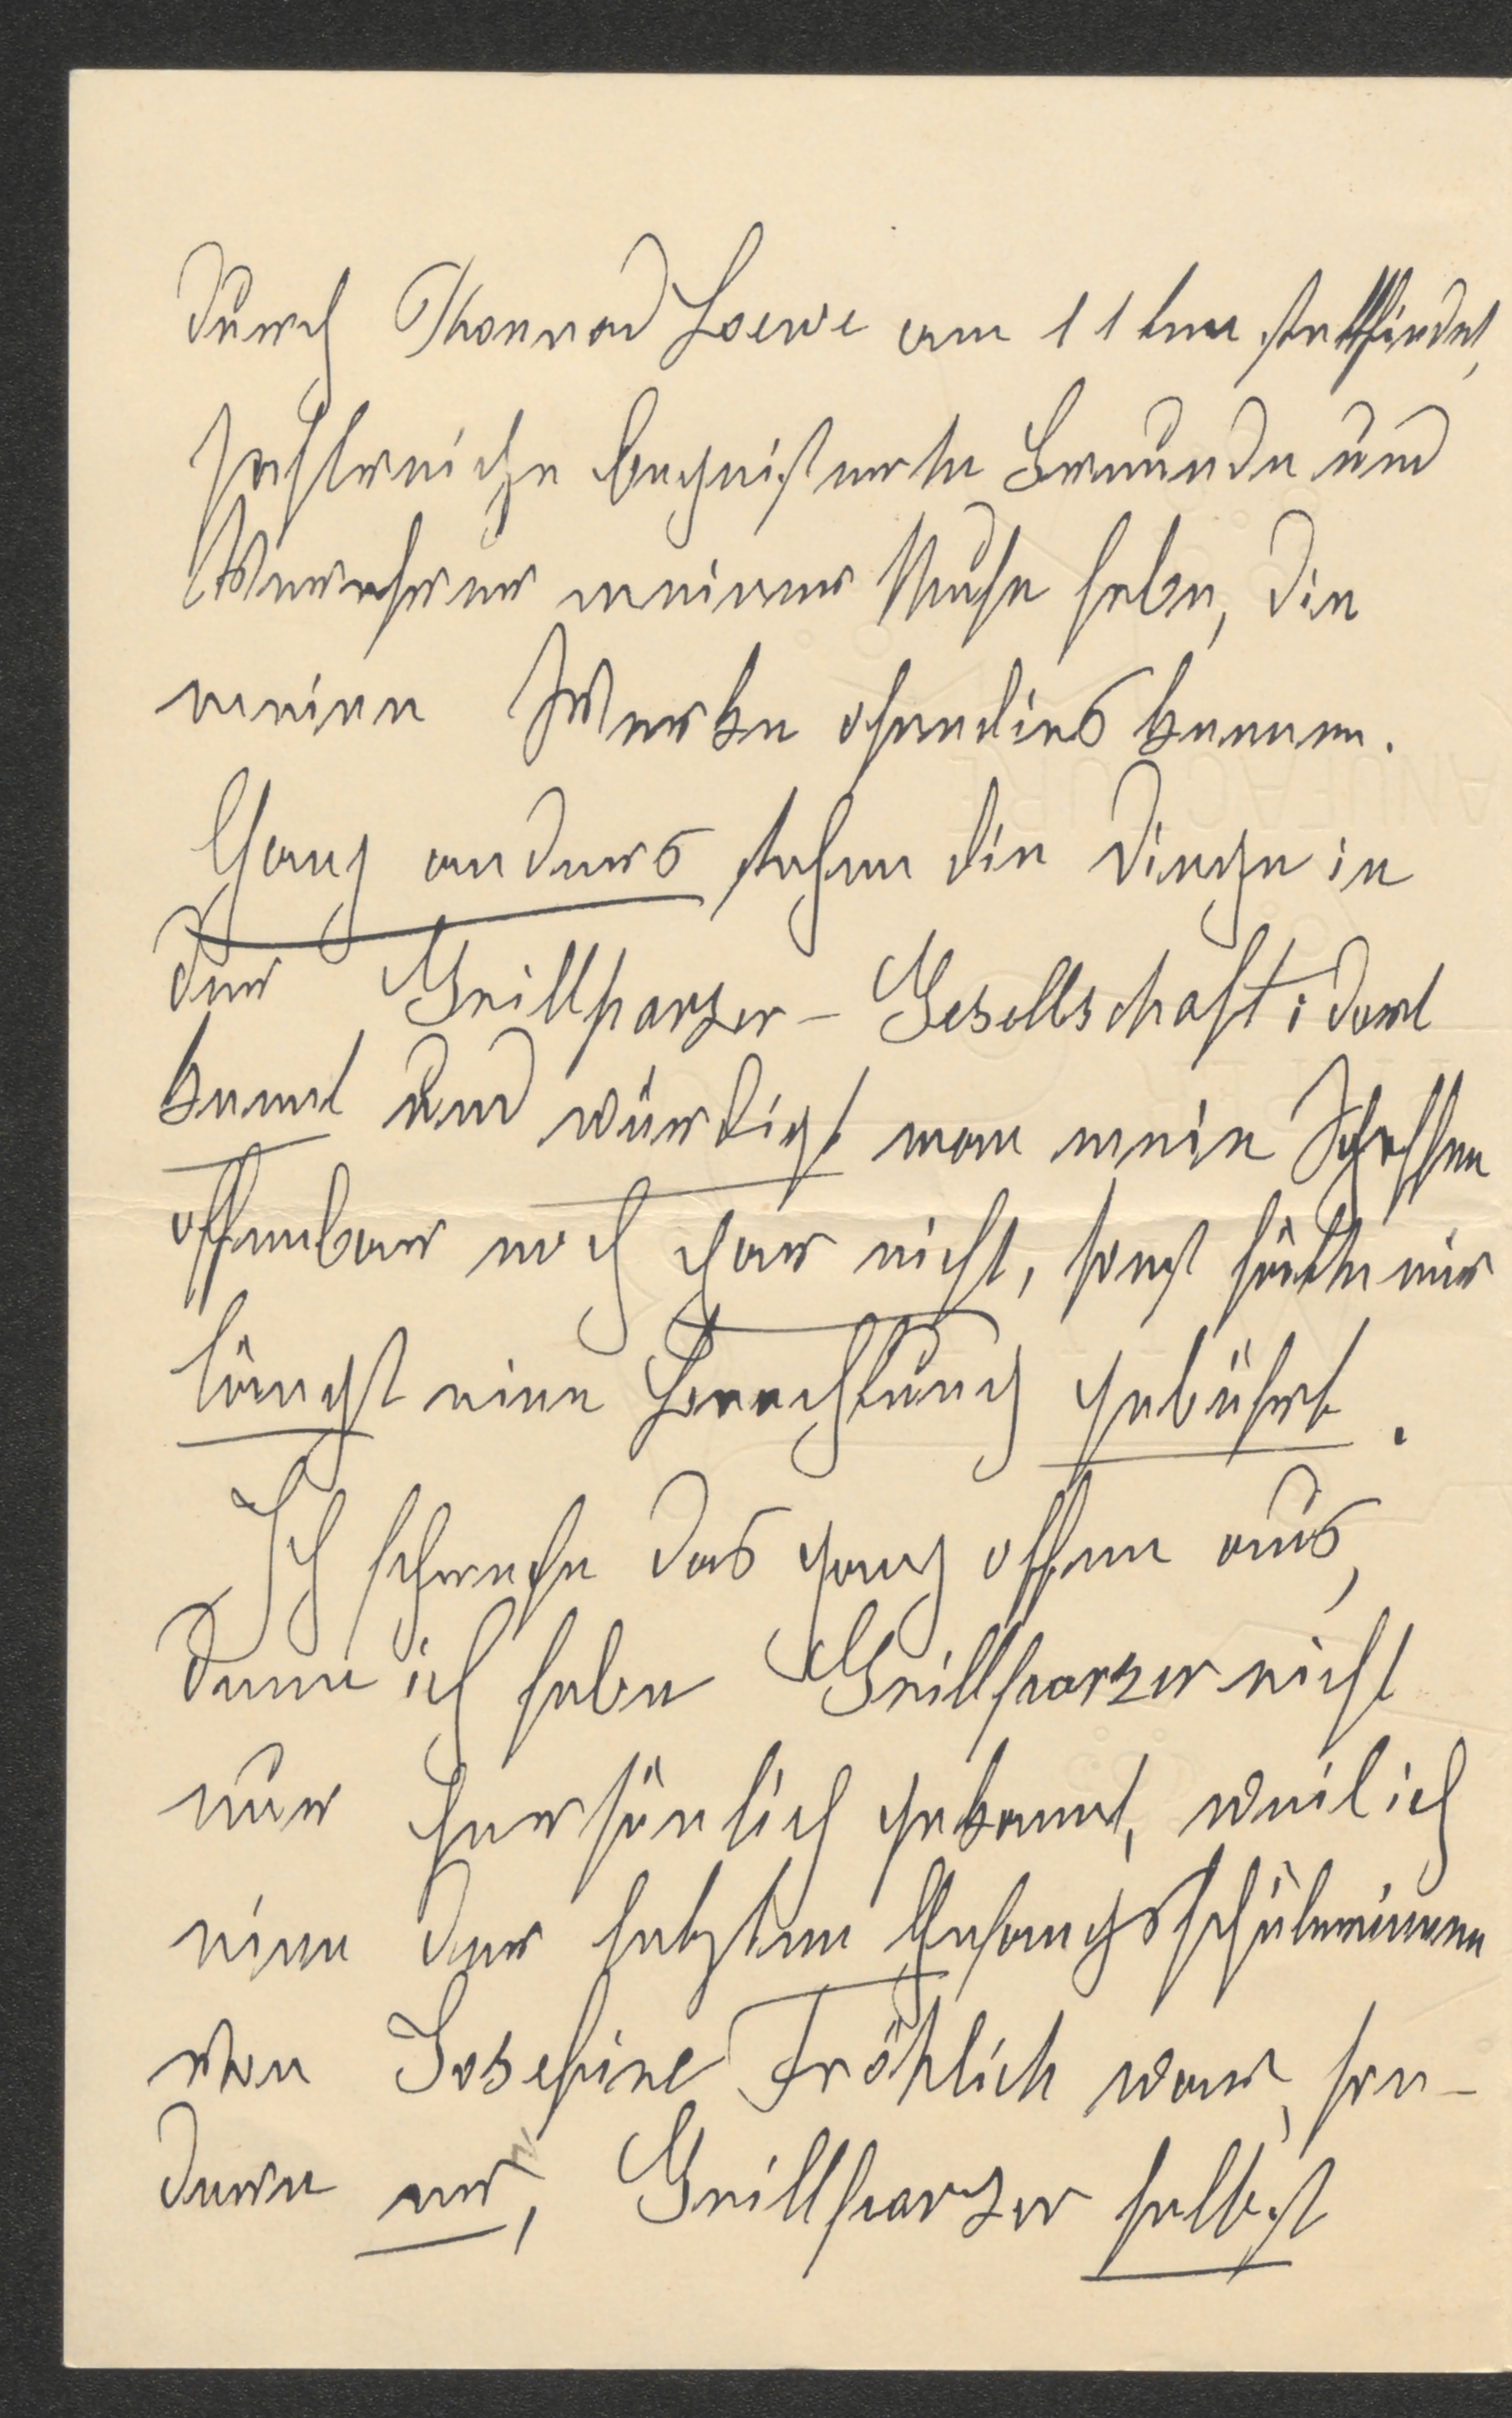 durch Konrad Loewe am 11ten stattfindet,
zahlreiche begeisterte Freunde und
Verehrer meiner Muse habe, die
meine Werke ohnedies kennen.
Ganz anders stehen die Dinge in
der Grillparzer-Gesellschaft; dort
kennt und würdigt man mein Schaffen
offenbar noch gar nicht, sonst hätte mir
längst eine Beachtung gebührt.
Ich spreche das ganz offen aus,
denn ich habe Grillparzer nicht
nur persönlich gekannt, weil ich
eine der letzten Gesangsschülerinnen
von Josefine Fröhlich war, son-
dern er, Grillparzer selbst